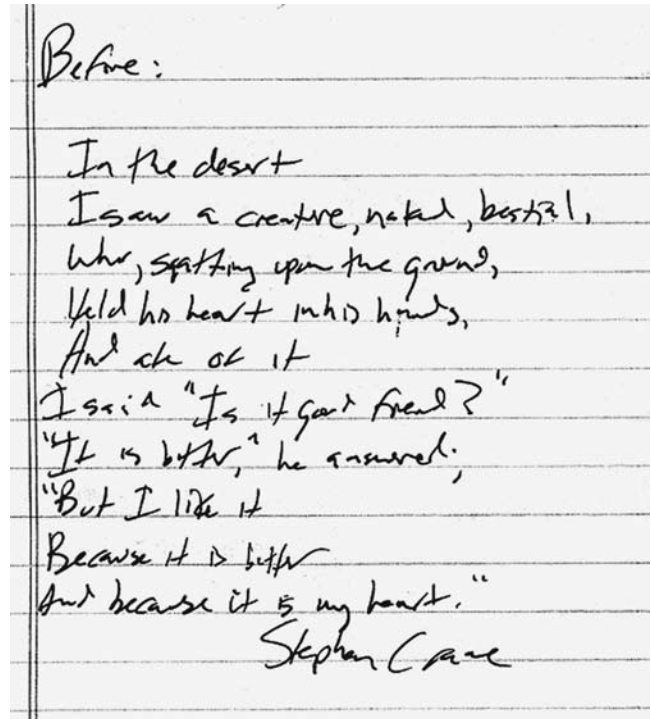 Before:
In the desert
I saw a creature, naked, bestial,
Who, squatting upon the ground,
Held his heart in his hands,
And ate of it
I said "Is it good friend?"
"It is bitter," he answered;
"But I like it
Because it is bitter
And because it is my heart."
Stephen Crane